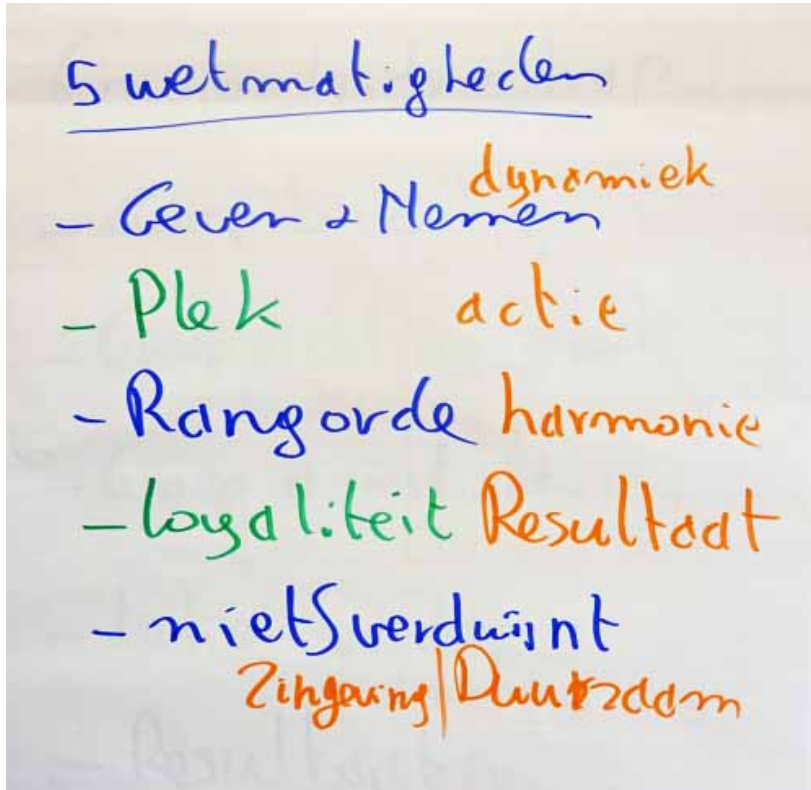 5 wetmatigheden
dynamiek
- Geven & Nemen
- Plek actie
- Rangorde harmonie
- loyaliteit Resultaat
- niets verdwijnt
Zingeving | Duurzaam